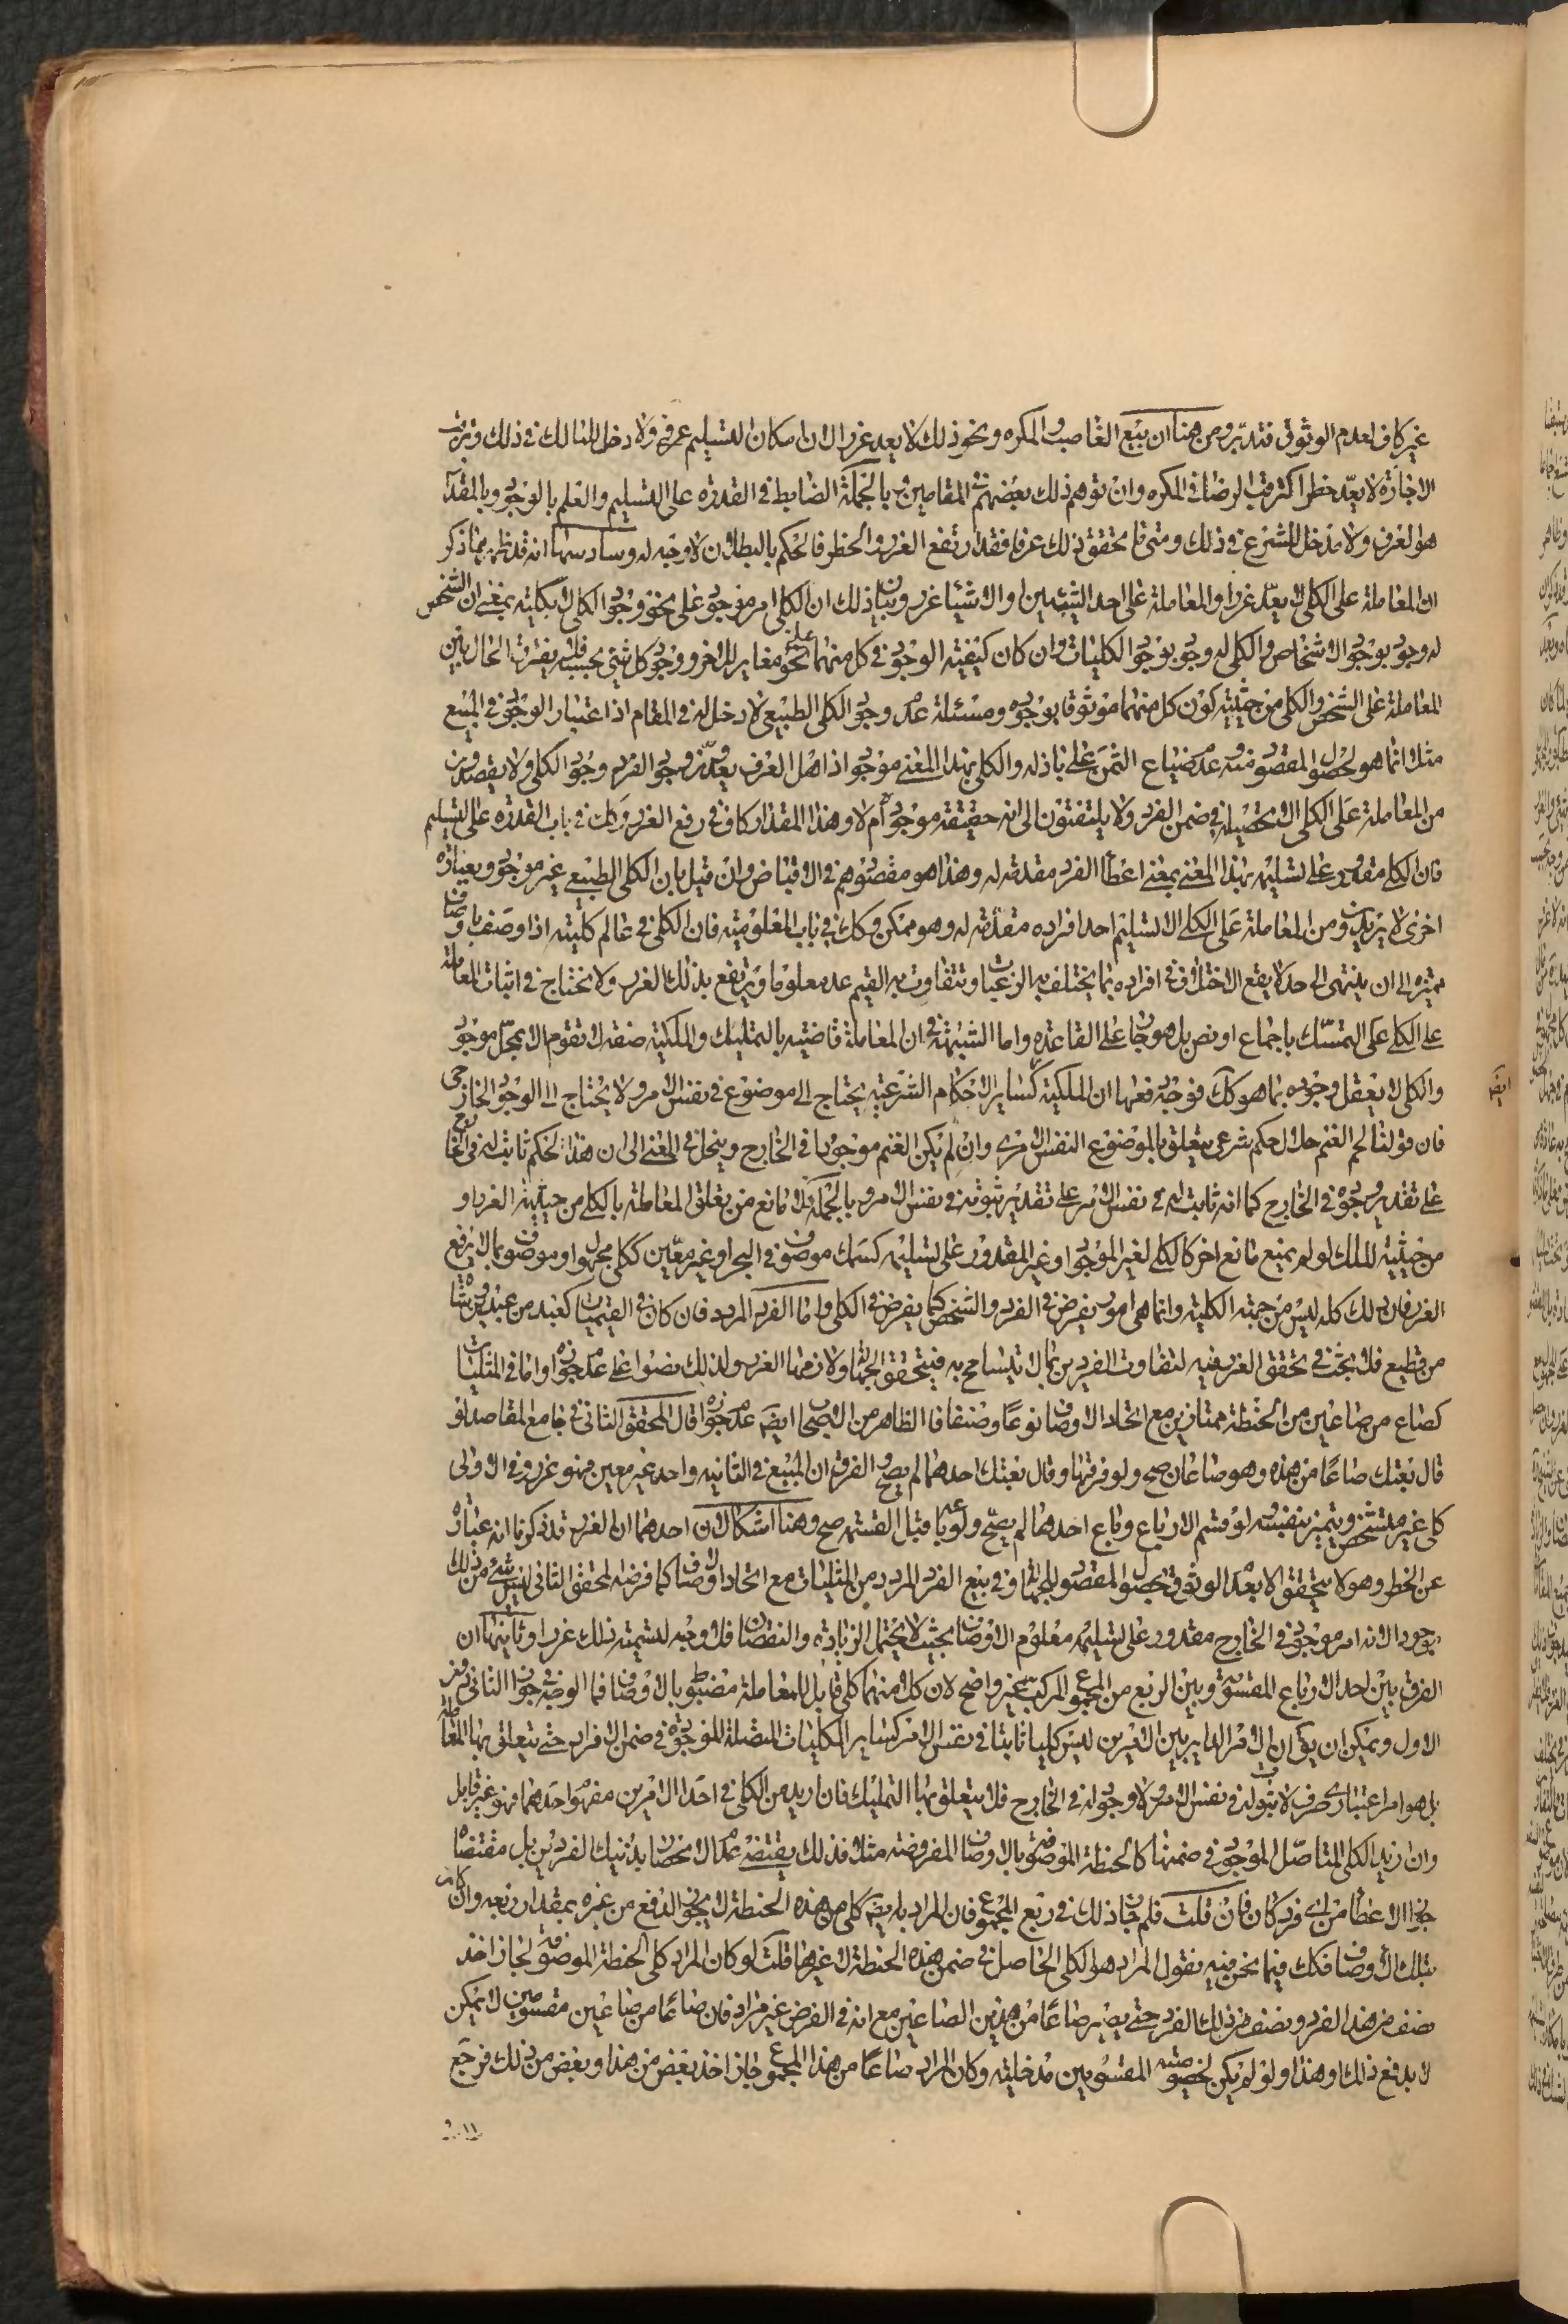 غير كاف لعدم الوثوق فتدبر ومن هنا ان بيع الغاصب والمكره ونحو ذلك لا يعد غررا لان امكان التسليم عرفي ولا دخل للمالك في ذلك وترتب
الاجازة لا يعد خطرا كترتب الرضا في المكره وان توهم ذلك بعضهم في المقامين وبالجملة الضابط في القدرة على التسليم والعلم بالوجود وبالمقدار
هو العرف ولا مدخل للشرع في ذلك ومتى ما تحقق ذلك عرفا فقد ارتفع الغرر والخطر فالحكم بالبطلان لا وجه له وسادسها انه قد ظهر مما ذكر
ان المعاملة على الكلي لا يعد غررا والمعاملة على احد الشيئين او الاشياء غرر وبيان ذلك ان الكلي امر موجود على نحو وجود الكلي لا بكليته بمعنى ان الشخص
له وجود بوجود الاشخاص والكلي له وجود بوجود الكليات وان كان كيفية الوجود في كل منهما على نحو مغاير للاخر ووجود كل شيء بحسبه فلا يفترق الحال بين
المعاملة على الشخص والكلي من حيثية كون كل منهما موثوقا بوجوده ومسئلة عدم وجود الكلي الطبيعي لا دخل له في المقام اذ اعتبار الوجود في المبيع
مثلا انما هو لحصول المقصود منه وعدم ضياع الثمن على باذله والكلي بهذا المعنى موجود اذ اهل العرف يعدون وجود الفرد وجود الكلي ولا يقصدون
من المعاملة على الكلي الا تحصيله في ضمن الفرد ولا يلتفتون الى انه حقيقة موجود ام لا وهذا المقدار كاف في رفع الغرر وكك في باب القدرة على التسليم
فان الكلي مقدور على تسليمه بهذا المعنى بمعنى اعطاء الفرد مقدمة له وهذا هو مقصودهم في الاقباض وان قيل بان الكلي الطبيعي غير موجود وبعبارة
اخرى لا يريدون من المعاملة على الكلي الا تسليم احد افراده مقدمة له وهو ممكن وكك في باب المعلومية فان الكلي في عالم كليته اذا وصف باوصاف
مميزه الى ان ينتهى الى حد لا يقع الاختلاف في افراده بما يختلف به الرغبات وتتفاوت به القيم عد معلوما ويرتفع بذلك الغرر ولا نحتاج في اثبات المعاملة
على الكلي على التمسك باجماع او نص بل هو جار على القاعدة واما الشبهة في ان المعاملة قاضية بالتمليك والملكية صفة لا تقوم الا بمحل موجود
والكلي لا يعقل وجوده بما هو كك فوجه دفعها ان الملكية كساير الاحكام الشرعية يحتاج الى موضوع في نفس الامر ولا يحتاج الى الوجود الخارجى
فان قولنا لحم الغنم حلال حكم شرعي يتعلق بالموضوع النفس الامري وان لم يكن الغنم موجودا في الخارج وينحل في المعنى الى ان هذا الحكم ثابت له في الواقع
على تقدير وجوده في الخارج كما انه ثابت له في نفس الامر على تقدير ثبوته في نفس الامر وبالجملة فلا مانع من تعلق المعاملة بالكلي من حيثية الغرر او
من حيثية الملك لو لم يمنع مانع اخر كالكلي الغير الموجود او غير المقدور على تسليمه كسمك موصوف في البحر او غير معين ككلي مجهول او موصوف بما لا يرفع
الغرر فان ذلك كله ليس من جهة الكلية وانما هي امور يفرض في الفرد والشخص كما يفرض في الكلي واما الفرد المردد فان كان في القيميات كعبد من عبدين وشاة
من قطيع فلا بحث في تحقق الغرر فيه لتفاوت الفردين بما لا يتسامح به فيتحقق الجهالة ولازمها الغرر ولذلك نصوا على عدم جوازه واما في المثليات
كصاع من صاعين من الحنطة ممتازين مع اتحاد الاوصاف نوعا وصنفا فالظاهر من الاصحاب ايضا عدم جوازه قال المحقق الثاني في جامع المقاصد لو
قال بعتك صاعا من هذه وهو صاعان صح ولو فرقها وقال بعتك احدهما لم يصح والفرق ان المبيع في الثانيه واحد غير معين فهو غرر وفي الاولى
كلي غير متشخص ويتميز بنفسه لو قسم الارباع وباع احدها لم يصح ولو باع ربعا قبل القسمة صح وهنا اشكالان احدهما ان الغرر قد ذكرنا انه عبارة
عن الخطر وهو لا يتحقق الا بعدم الوثوق بحصول المقصود للجهالة وفي بيع الفرد المردد من المثليات مع اتحاد اوصاف كما فرضه المحقق الثاني ليس شيء من ذلك
بوجود لانه امر موجود في الخارج مقدور على تسليمه معلوم الاوصاف بحيث لا يحتمل الزيادة والنقصان فلا وجه لتسمية ذلك غررا وثانيهما ان
الفرق بين احد الارباع المقسومة وبين الربع من المجموع المركب غير واضح لان كلا منهما كلي قابل للمعاملة مضبوط بالاوصاف فما الوجه في جواز الثاني دون
الاول ويمكن ان يقال ان الامر الداير بين الامرين ليس كليا ثابتا في نفس الامر كساير الكليات المتاصلة الموجودة في ضمن الافراد حتى يتعلق بها المعاملة
بل هو امر اعتباري صرف لا ثبوت له في نفس الامر ولا وجود له في الخارج فلا يتعلق بها التمليك فان اريد من الكلي في احد الامرين مفهوم احدهما فهو غير قابل
وان اريد الكلي المتاصل الموجود في ضمنها كالحنطة الموصوفة بالاوصاف المفروضه مثلا فذلك يقتضي عدم الانحصار بذينك الفردين بل مقتضاه
جواز الاعطاء من اي فرد كان فان قلت فلم جاز ذلك في ربع المجموع فان المراد به ايضا كلي من هذه الحنطة لا يجوز الدفع من غيره بمقدار ربعه وان كان
بتلك الاوصاف فكك فيما نحن فيه نقول المراد هو الكلي الحاصل في ضمن هذه الحنطة لا غيرها قلت لو كان المراد كلي الحنطة الموصوفة لجاز اخذ
نصف من هذا الفرد ونصف من ذلك الفرد حتى يصير صاعا من هذين الصاعين مع انه في الفرض غير مراد فان صاعا من صاعين مقسومين لا يمكن
الا بدفع ذلك او هذا ولو لم يكن لخصوصية المقسومين مدخلية وكان المراد صاعا من هذا المجموع جاز اخذ بعض من هذا وبعض من ذلك فرجع
ايضا